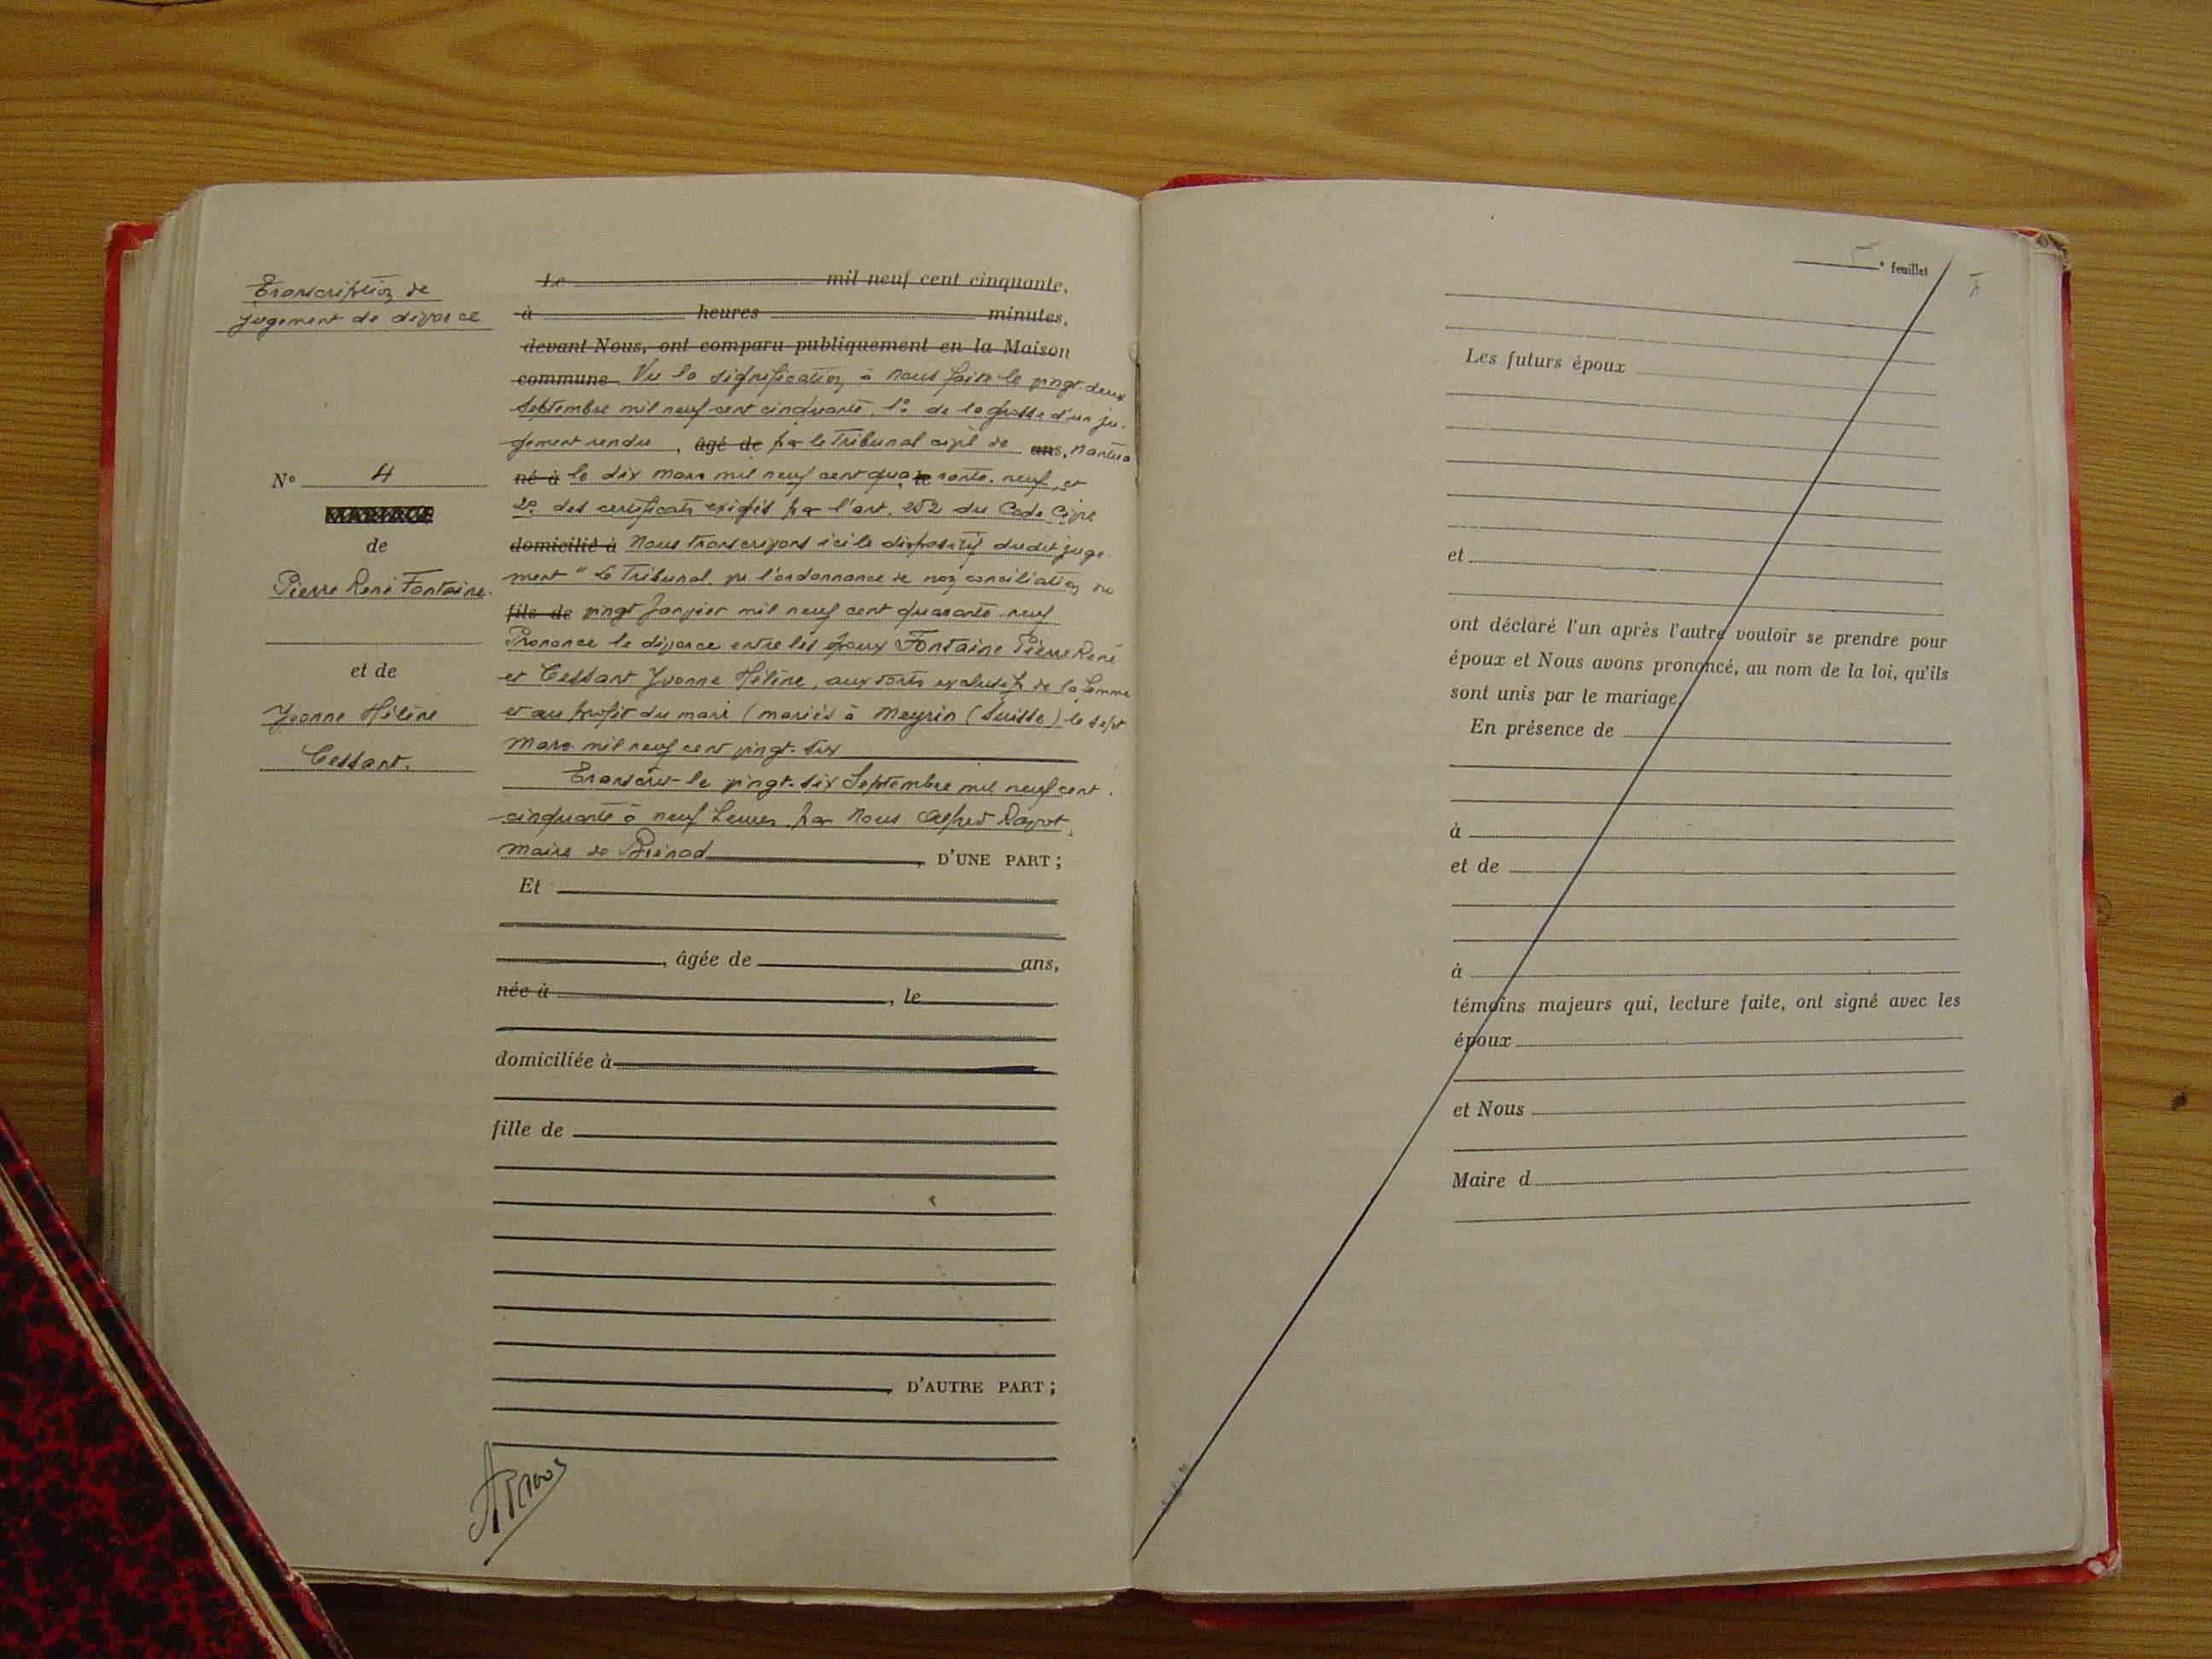 Transcription de
jugement de divorce
N° 4
MARIAGE
de
Pierre René Fontaine.
et de
Yvonne Hélène
Cessant.
Le mil neuf cent cinquante,
à heures minutes,
devant Nous, ont comparu publiquement en la Maison
commune Vu la signification à nous faite le vingt-deux
Septembre mil neuf cent cinquante, 1° de la grosse d'un ju-
gement rendu , âgé de par le Tribunal civil de ans, Nantua
né à le dix mars mil neuf cent qua le rante-neuf, et
2° des certificats exigés par l'art. 252 du Code Civil
domicilié à Nous transcrivons ici le dispositif dudit juge-
ment " Le Tribunal, vu l'ordonnance de non conciliation du
fils de vingt Janvier mil neuf cent quarante-neuf
Prononce le divorce entre les époux Fontaine Pierre René
et Cessant Yvonne Hélène, aux torts exclusifs de la femme
et au profit du mari (mariés à Meyrin (Suisse) le sept
Mars mil neuf cent vingt-six
Transcrit le vingt-six Septembre mil neuf cent
cinquante à neuf heures, par Nous Alfred
Maire de Brénod , D'UNE PART ;
Et
, âgée de ans,
née à , le
domiciliée à
fille de
, D'AUTRE PART ;
e feuillet
Les futurs époux
et
ont déclaré l'un après l'autre vouloir se prendre pour
époux et Nous avons prononcé, au nom de la loi, qu'ils
sont unis par le mariage.
En présence de
à
et de
à
témoins majeurs qui, lecture faite, ont signé avec les
époux
et Nous
Maire d